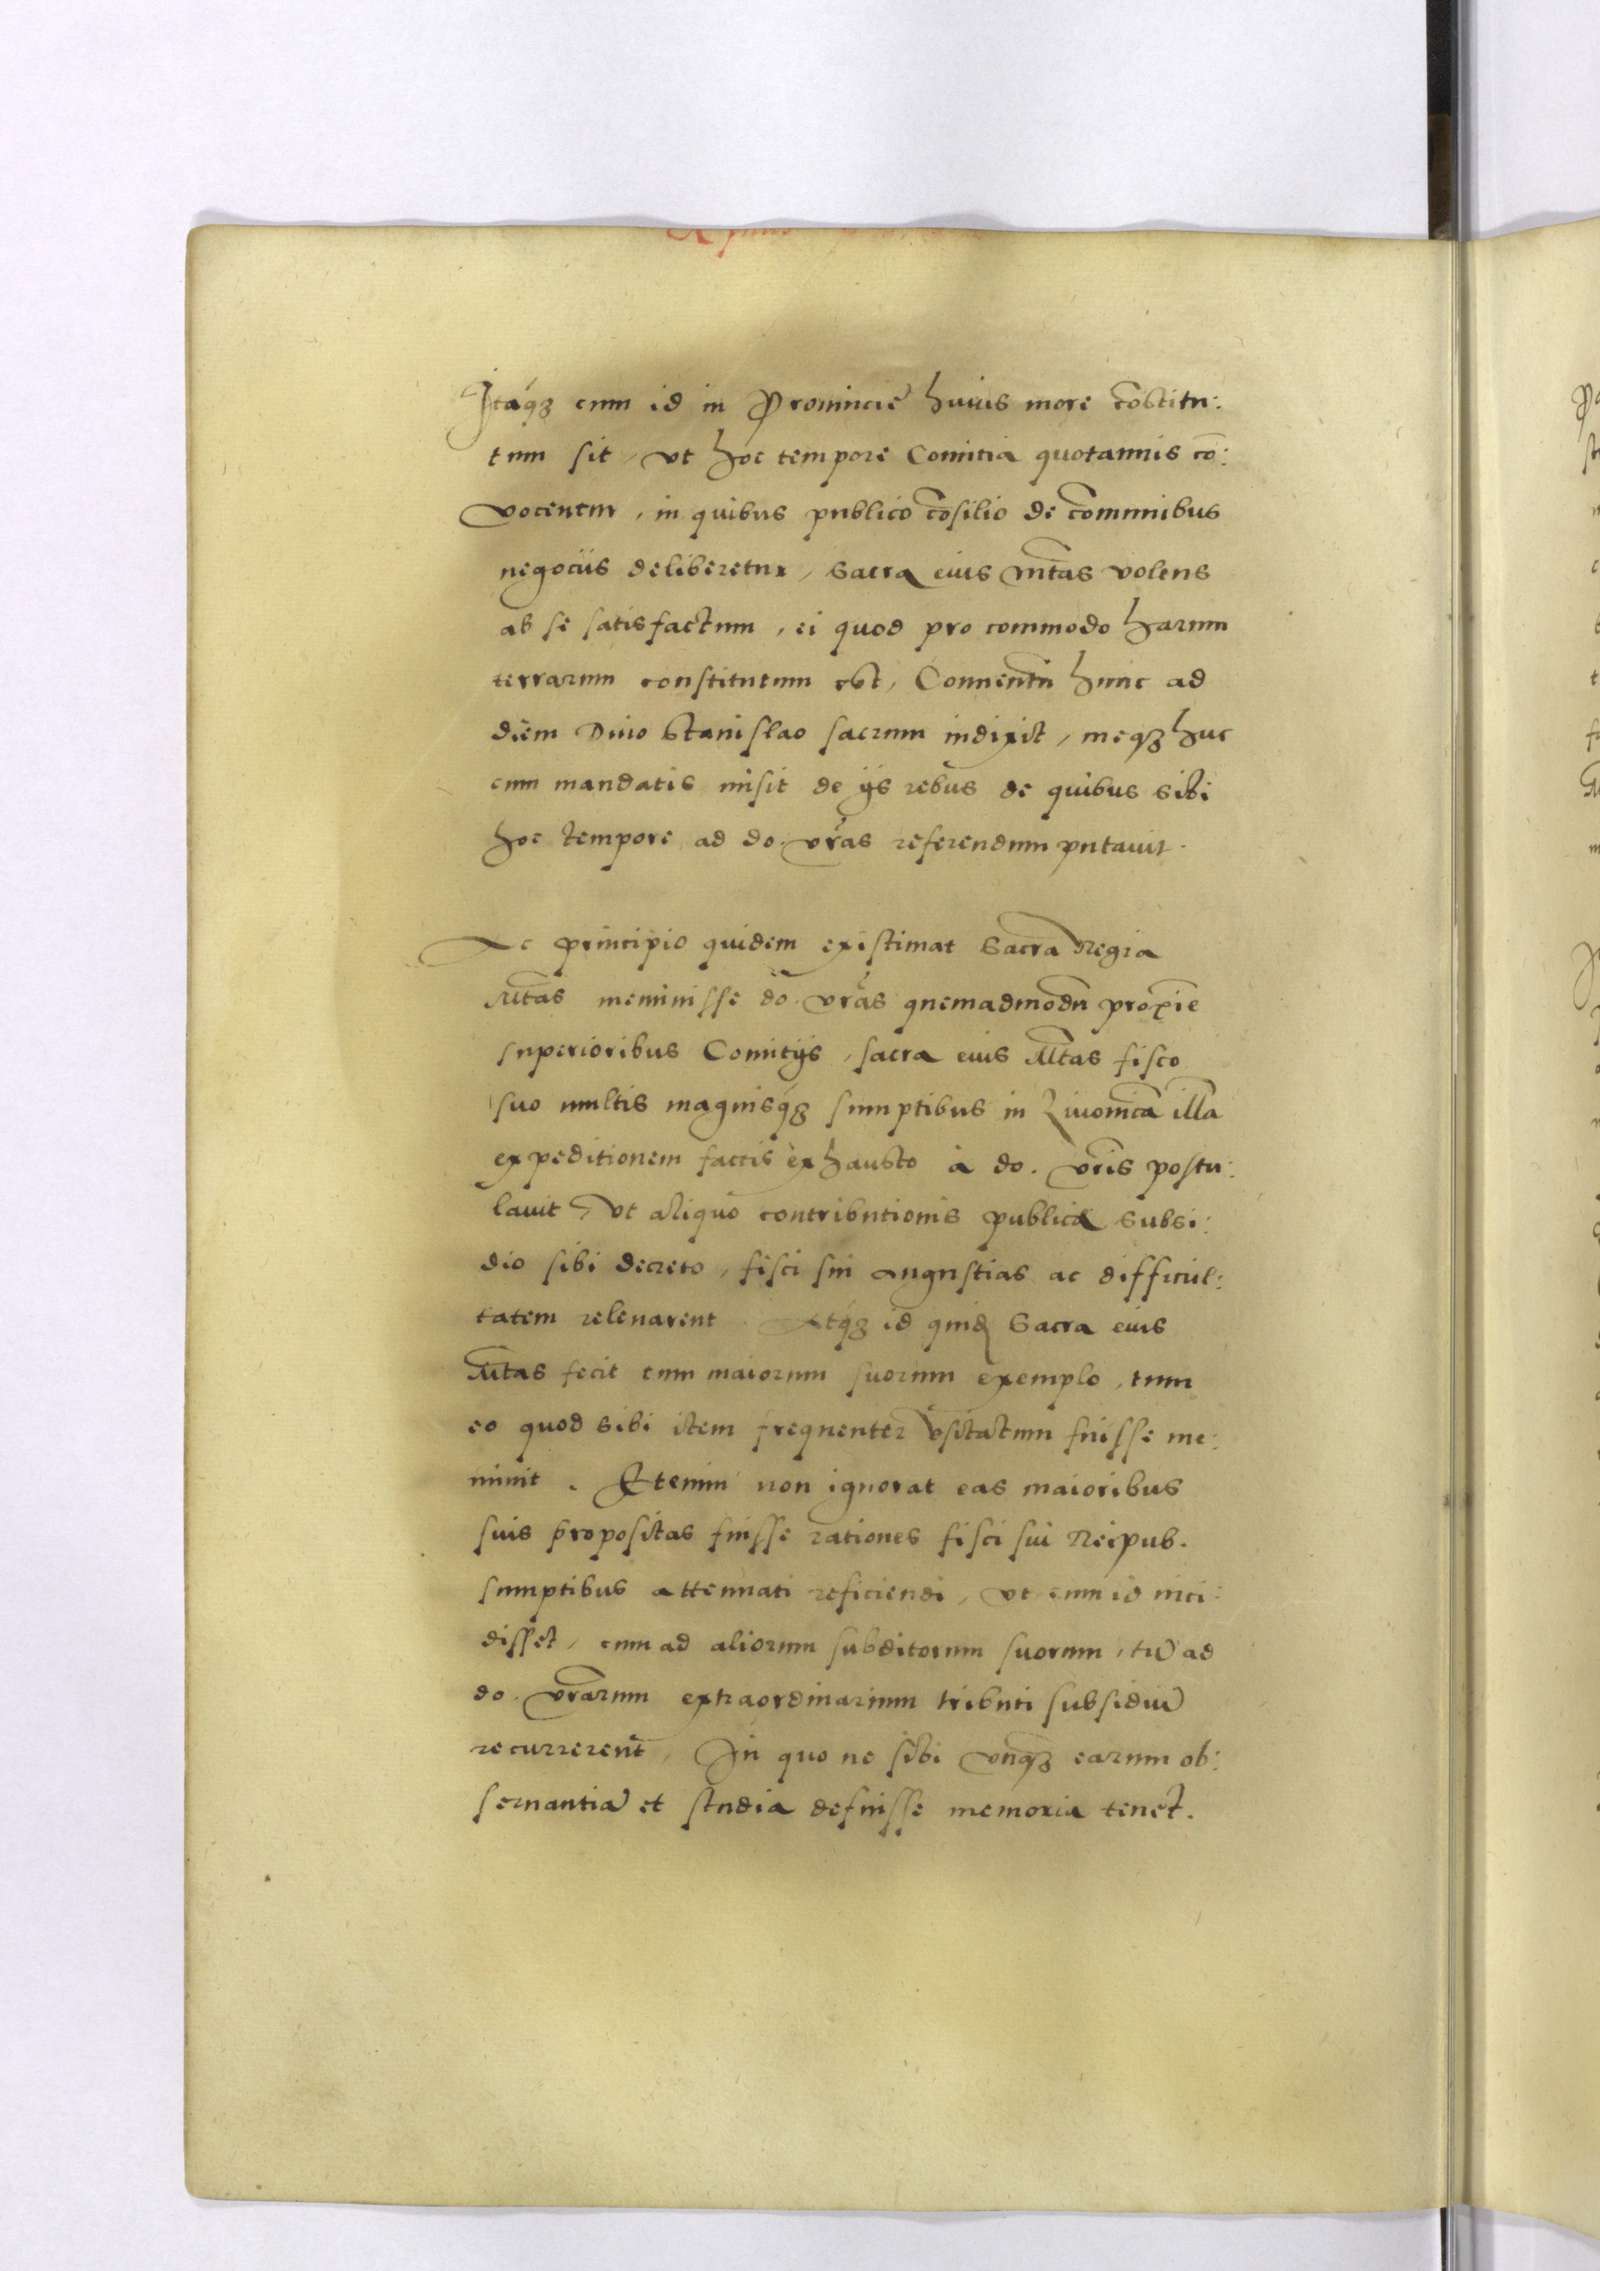 Itaq́ꝫ cum id in Prouincię huius more cõstitu:
tum sit, vt hoc tempore Comitia quotannis cõ:
vocentur, in quibus publico cõsilio de cõmunibus
negociis deliberetur, Sacra eius Mtas volens
ab se satisfactum, ei quod pro commodo harum
terrarum constitutum est, Conuentũ hunc ad
diem Diuo Stanislao sacrum indixit, meqꝫ huc
cum mandatis misit de ijs rebus de quibus sibi
hoc tempore ad do. vras referendum putauit.
Ac principio quidem existimat Sacra Regia
Mtas meminisse do. vras quemadmodũ proxĩe
superioribus Comitijs, sacra eius Mtas fisco
suo multis magnisq́ꝫ sumptibus in Liuonicã illã
expeditionem factis exhausto à do. vris postu:
lauit, Vt aliquo contributionis publicæ subsi:
dio sibi decreto, fisci sui angustias ac difficul:
tatem releuarent. Atq́ꝫ id quidẽ Sacra eius
Mtas fecit cum maiorum suorum exemplo, tum
eo quod sibi item frequenter vsitatum fuisse me:
minit. Etenim non ignorat eas maioribus
suis propositas fuisse rationes fisci sui Reipub.
sumptibus attenuati reficiendi, vt cum id inci:
disset, cum ad aliorum subditorum suorum, tũ ad
do. vrarum extraordinarium tributi subsidiũ
recurrerent, In quo ne sibi vnqꝫ earum ob:
seruantiã et studia defuisse memoria tenet.